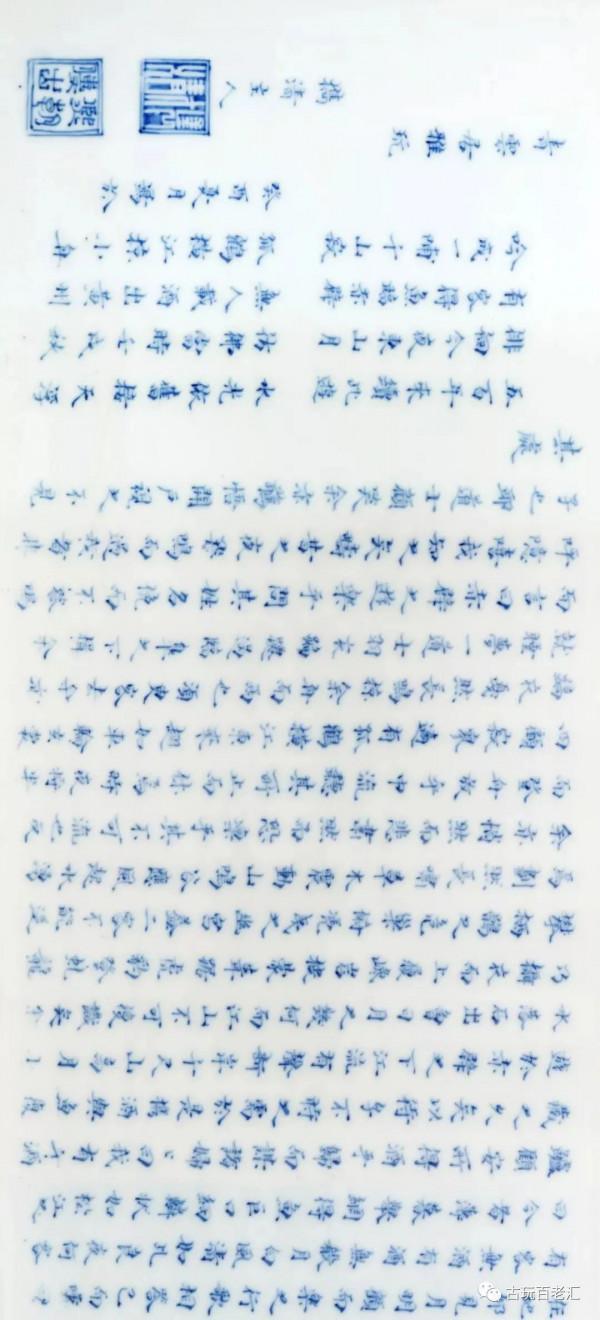 在地仰見月明顧而樂之行歌相答已而嘆曰
有客無酒有酒無殽月白風清如此良夜何客
曰今者薄暮舉網得魚巨口細鱗狀如松江之
鱸顧安所得酒乎歸而謀諸婦婦曰我有斗酒
藏之久矣以待子不時之需於是攜酒與魚復
遊於赤壁之下江流有聲斷岸千尺山高月小
水落石出曾日月之幾何而江山不可復識矣余
乃攝衣而上履巉岩披蒙茸踞虎豹登虬龍
攀栖鶻之危巢俯馮夷之幽宮蓋二客不能從
焉劃然長嘯草木震動山鳴谷應風起水湧
余亦悄然而悲肅然而恐凜乎其不可流也反
而登舟放乎中流聽其所止而休焉時夜將半
四顧寂寥適有孤鶴橫江東來翅如車輪玄裳
縞衣戛然長鳴掠余舟而西也須臾客去余亦
就睡夢一道士羽衣蹁躚過臨皋之下揖余
而言曰赤壁之遊樂乎問其姓名俛而不答嗚
呼噫嘻我知之矣疇昔之夜飛鳴而過我者非
子也耶道士顧笑余亦驚悟開戶視之不見
其處
五百年來續此遊 水光依舊接天浮
徘徊今夜東山月 彷彿當時壬戌秋
有客得魚臨赤壁 無人載酒出黃州
吟成一嘯千山寂 孤鶴橫江掠小舟
癸酉夏月寫於
青雲居雅玩
主人
古玩百老汇